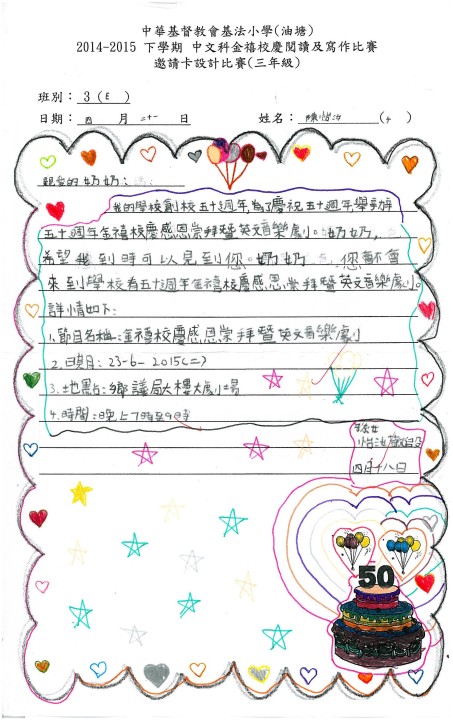 中華基督教會基法小學(油塘)
2014-2015 下學期 中文科金禧校慶閱讀及寫作比賽
邀請卡設計比賽(三年級)
班別: 3 (E)
日期: 四 月 二十一 日 姓名: 陳怡汝 (十)
親愛的奶奶:
我的學校創校五十週年,為了慶祝五十週年,舉辦
五十週年金禧校慶感恩崇拜暨英文音樂劇。奶奶,
希望 到時可以見到您。奶奶 您都會
來到學校為五十週年金禧校慶感恩崇拜暨英文音樂劇。
詳情如下:
1.節目名稱:金禧校慶感恩崇拜暨英文音樂劇
2.日期:23-6-2015(二)
3.地點:鄉議局大樓大劇場
4.時間:晚上7時至9時
孫女
怡汝
四月十八日
50